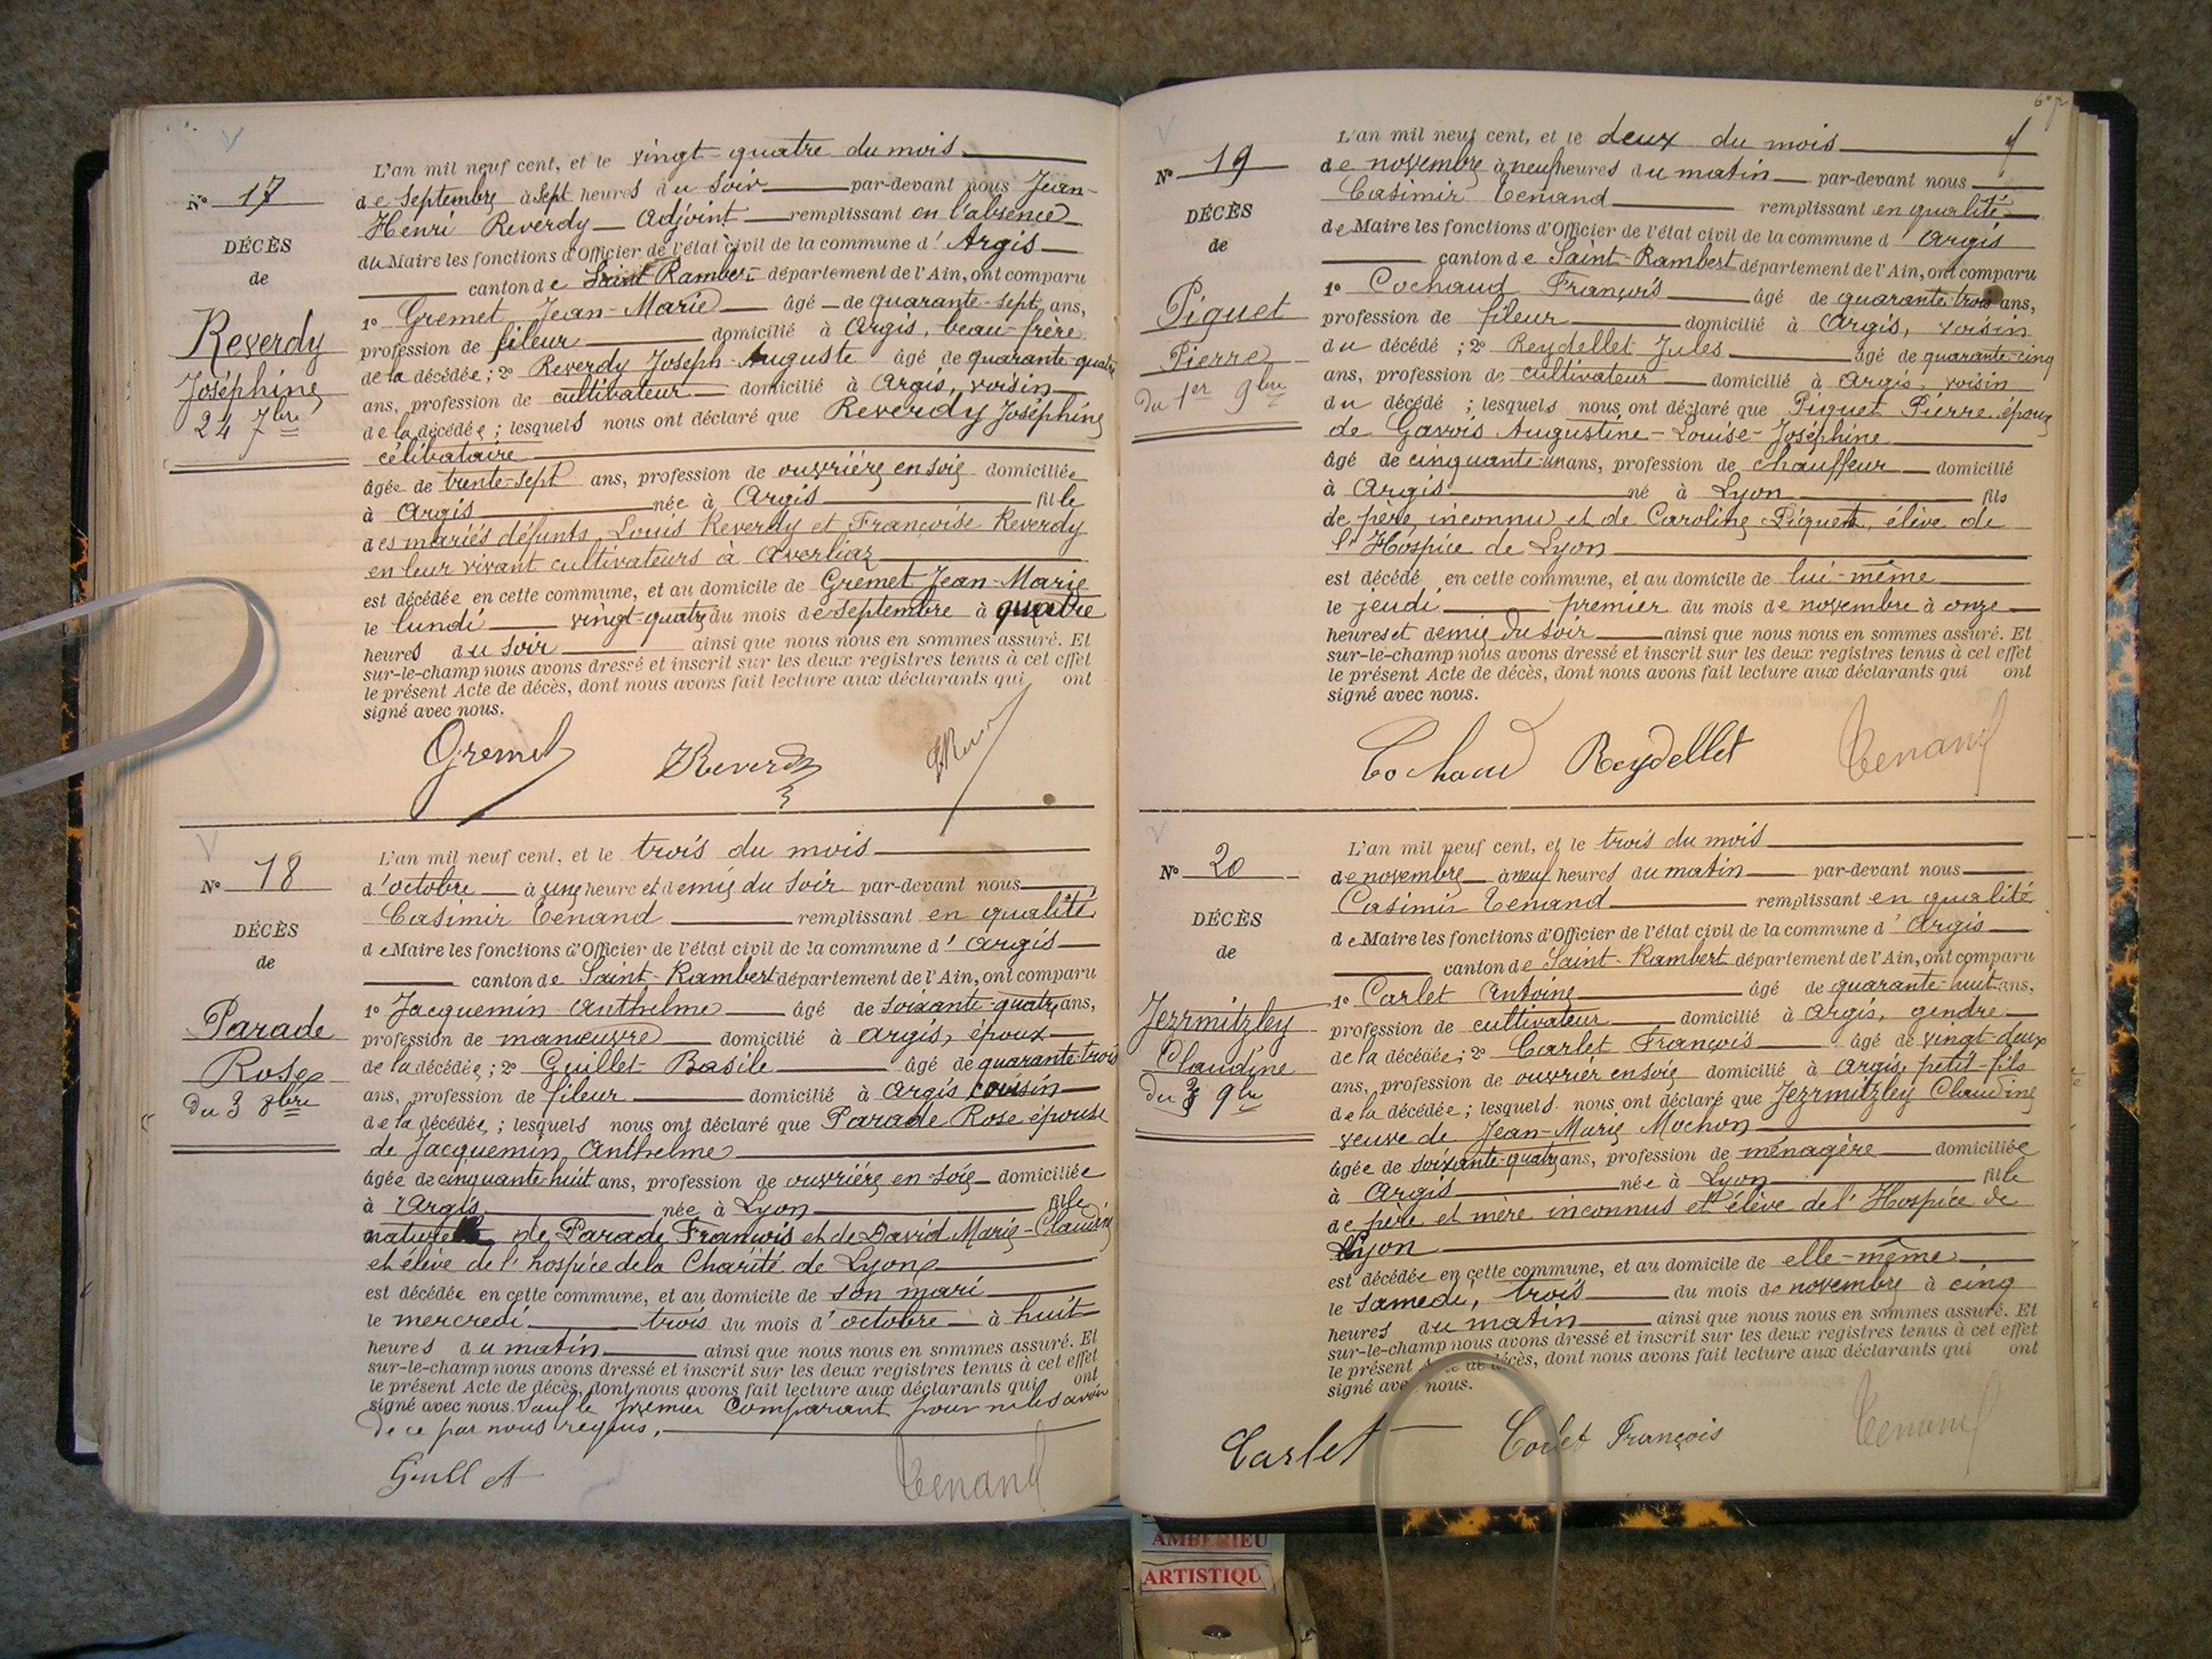 N° 17
DÉCÈS
de
Reverdy
Joséphine
24 7bre
L'an mil neuf cent, et le vingt-quatre du mois
de Septembre à sept heures du soir par-devant nous Jean-
Henri Reverdy Adjoint remplissant en l'absence
du Maire les fonctions d'Officier de l'état civil de la commune d'Argis
canton de Saint Rambert département de l'Ain, ont comparu
1° Gremet Jean-Marie âgé de quarante-sept ans,
profession de fileur domicilié à Argis, beau-frère
de la décédée; 2° Reverdy Joseph-Auguste âgé de quarante-quatre
ans, profession de cultivateur domicilié à Argis, voisin
de la décédée; lesquels nous ont déclaré que Reverdy Joséphine
célibataire
âgée de trente-sept ans, profession de ouvrière en soie domiciliée
à Argis née à Argis fille
des mariés défunts Louis Reverdy et Françoise Reverdy
en leur vivant cultivateurs à Averliaz
est décédée en cette commune, et au domicile de Gremet Jean-Marie
le lundi vingt-quatre du mois de septembre à quatre
heures du soir ainsi que nous nous en sommes assuré. Et
sur-le-champ nous avons dressé et inscrit sur les deux registres tenus à cet effet
le présent Acte de décès, dont nous avons fait lecture aux déclarants qui ont
signé avec nous.
Gremet Reverdy
N° 18
DÉCÈS
de
Parade
Rose
Du 3 8bre
L'an mil neuf cent, et le trois du mois
d'octobre à une heure et demie du soir par-devant nous
Casimir Tenand remplissant en qualité
de Maire les fonctions d'Officier de l'état civil de la commune d'Argis
canton de Saint-Rambert département de l'Ain, ont comparu
1° Jacquemin Anthelme âgé de soixante-quatre ans,
profession de manœuvre domicilié à Argis, époux
de la décédée; 2° Guillet Basile âgé de quarante-trois
ans, profession de fileur domicilié à Argis cousin
de la décédée; lesquels nous ont déclaré que Parade Rose épouse
de Jacquemin Anthelme
âgée de cinquante-huit ans, profession de ouvrière en soie domiciliée
à Argis née à Lyon fille
naturelle de Parade François et de David Marie-Claudine
et élève de l'hospice de la Charité de Lyon
est décédée en cette commune, et au domicile de son mari
le mercredi trois du mois d'octobre à huit
heures du matin ainsi que nous nous en sommes assuré. Et
sur-le-champ nous avons dressé et inscrit sur les deux registres tenus à cet effet
le présent Acte de décès, dont nous avons fait lecture aux déclarants qui ont
signé avec nous. Sauf le premier comparant pour ne le savoir
de ce par nous requis,
Guillet Tenand
N° 19
DÉCÈS
de
Piguet
Pierre
Du 1er 9bre
L'an mil neuf cent, et le deux du mois
de novembre à neuf heures du matin par-devant nous
Casimir Tenand remplissant en qualité
de Maire les fonctions d'Officier de l'état civil de la commune d'Argis
canton de Saint-Rambert département de l'Ain, ont comparu
1° Cochaud François âgé de quarante-trois ans,
profession de fileur domicilié à Argis, voisin
du décédé; 2° Reydellet Jules âgé de quarante-cinq
ans, profession de cultivateur domicilié à Argis, voisin
du décédé; lesquels nous ont déclaré que Piguet Pierre époux
de Gavois Augustine-Louise-Joséphine
âgé de cinquante-un ans, profession de chauffeur domicilié
à Argis né à Lyon fils
de père inconnu et de Caroline Piguet, élève de
l'Hospice de Lyon
est décédé en cette commune, et au domicile de lui-même
le jeudi premier du mois de novembre à onze
heures et demie du soir ainsi que nous nous en sommes assuré. Et
sur-le-champ nous avons dressé et inscrit sur les deux registres tenus à cet effet
le présent Acte de décès, dont nous avons fait lecture aux déclarants qui ont
signé avec nous.
Cochaud Reydellet Tenand
N° 20
DÉCÈS
de
Jezrmitzley
Claudine
Du 3 9bre
L'an mil neuf cent, et le trois du mois
de novembre à neuf heures du matin par-devant nous
Casimir Tenand remplissant en qualité
de Maire les fonctions d'Officier de l'état civil de la commune d'Argis
canton de Saint-Rambert département de l'Ain, ont comparu
1° Carlet Antoine âgé de quarante-huit ans,
profession de cultivateur domicilié à Argis, gendre
de la décédée; 2° Carlet François âgé de vingt-deux
ans, profession de ouvrier en soie domicilié à Argis, petit-fils
de la décédée; lesquels nous ont déclaré que Jezrmitzley Claudine
veuve de Jean-Marie Mochon
âgée de soixante-quatre ans, profession de ménagère domiciliée
à Argis née à Lyon fille
de père et mère inconnus et élève de l'Hospice de
Lyon
est décédée en cette commune, et au domicile de elle-même
le samedi, trois du mois de novembre à cinq
heures du matin ainsi que nous nous en sommes assuré. Et
sur-le-champ nous avons dressé et inscrit sur les deux registres tenus à cet effet
le présent Acte de décès, dont nous avons fait lecture aux déclarants qui ont
signé avec nous.
Carlet Carlet François Tenand
AMBERIEU
ARTISTIQU